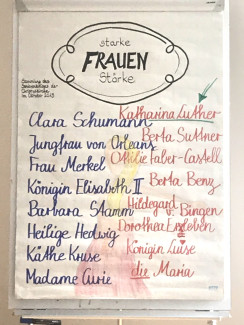 starke
FRAUEN
Stärke
Clara Schumann
Jungfrau von Orleans
Frau Merkel
Königin Elisabeth II
Barbara Stamm
Heilige Hedwig
Käthe Kruse
Madame Curie
Katharina Luther
Berta Suttner
Ottilie Faber-Castell
Berta Benz
Hildegard
v. Bingen
Dorothea Erxleben
Königin Luise
die Maria